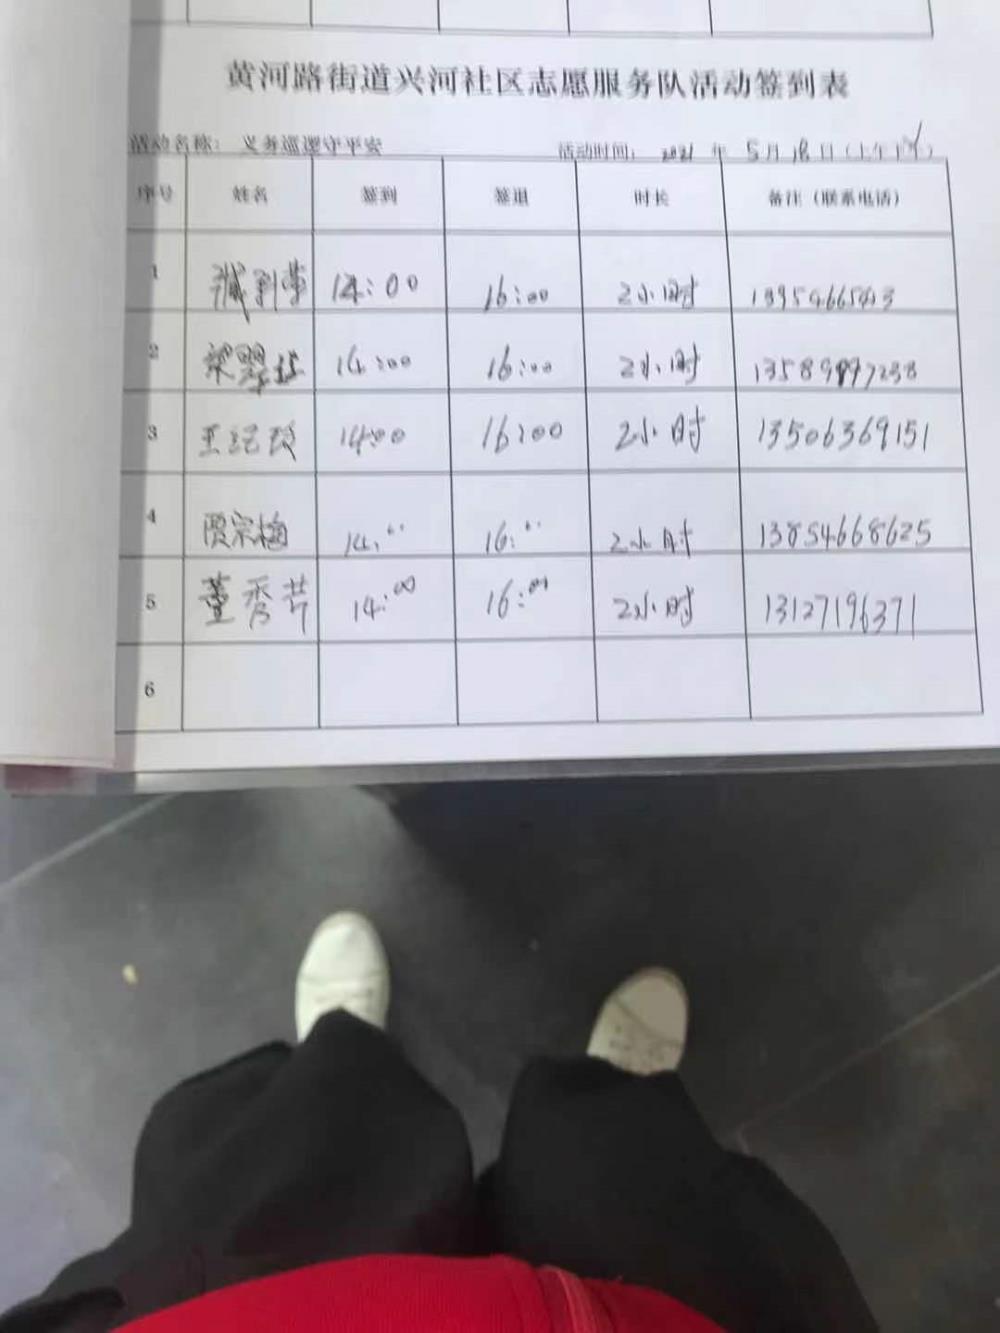 黄河路街道兴河社区志愿服务队活动签到表
活动名称： 义务巡逻守平安 活动时间： 2021 年 5月18日（上午下午）
序号 姓名 签到 签退 时长 备注（联系电话）
1 14:00 16:00 2小时
2 14:00 16:00 2小时
3 14:00 16:00 2小时 13506369151
4 贾宗梅 14:00 16:00 2小时 13854668625
5 董秀芳 14:00 16:00 2小时 13127196371
6